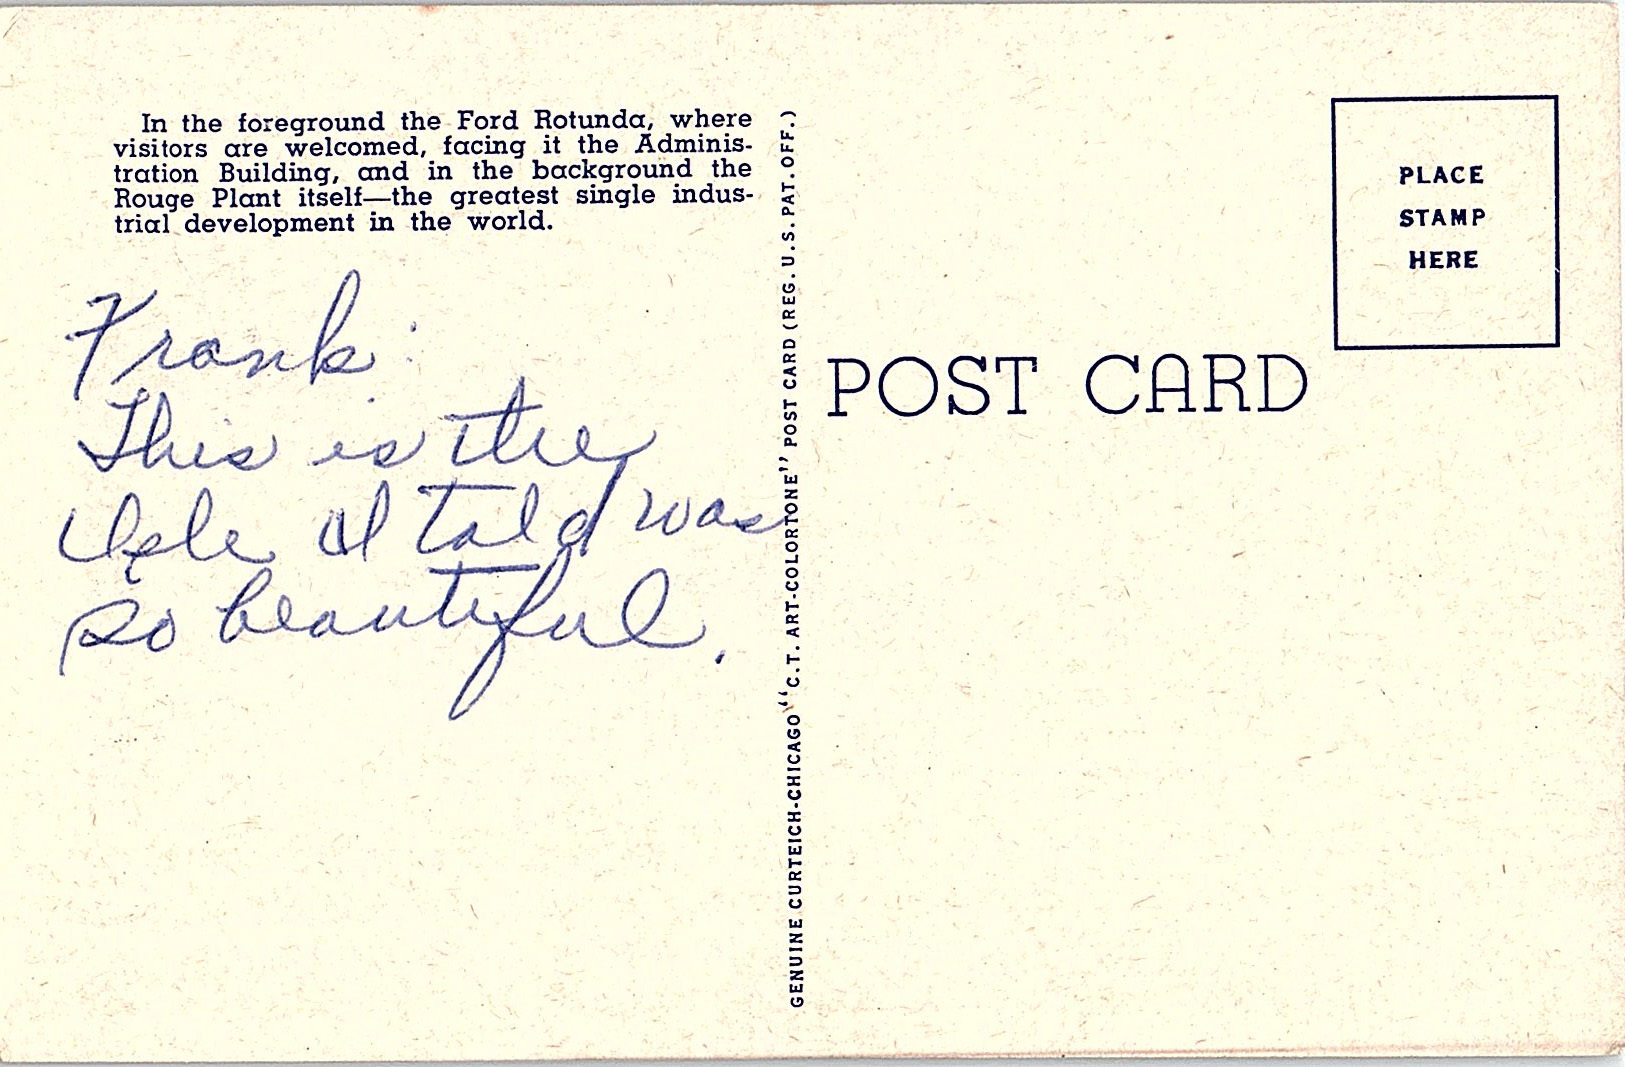 In the foreground the Ford Rotunda, where
visitors are welcomed, facing it the Adminis-
tration Building, and in the background the
Rouge Plant itself—the greatest single indus-
trial development in the world.
Frank:
This is the
Isle I told was
so beautiful.
GENUINE CURTEICH-CHICAGO "C.T. ART-COLORTONE" POST CARD (REG. U.S. PAT. OFF.)
PLACE
STAMP
HERE
POST CARD